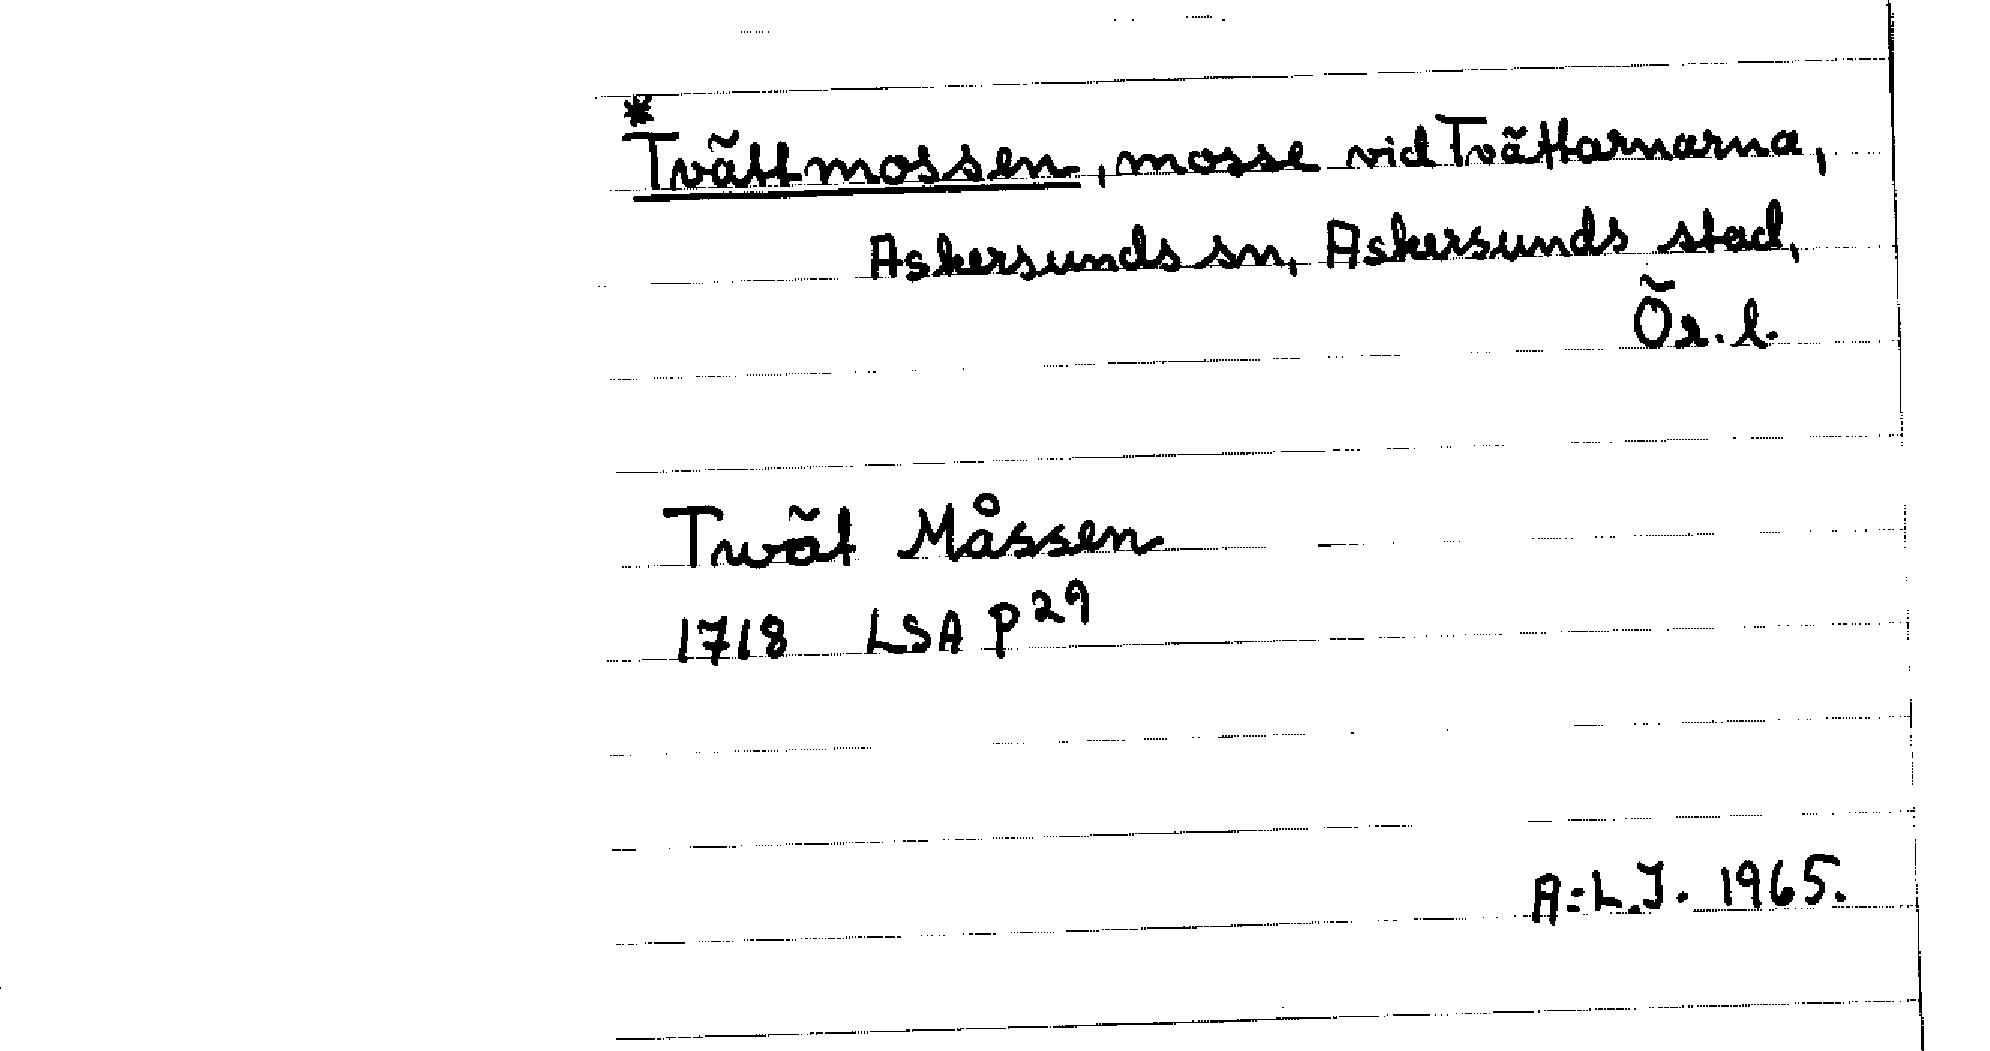 *Tvättmossen, mosse vid Tvättarnarna,
Askersunds sn, Askersunds stad,
Ör. l.
Twät Måssen
1718 LSA P²⁹
A=L.J. 1965.